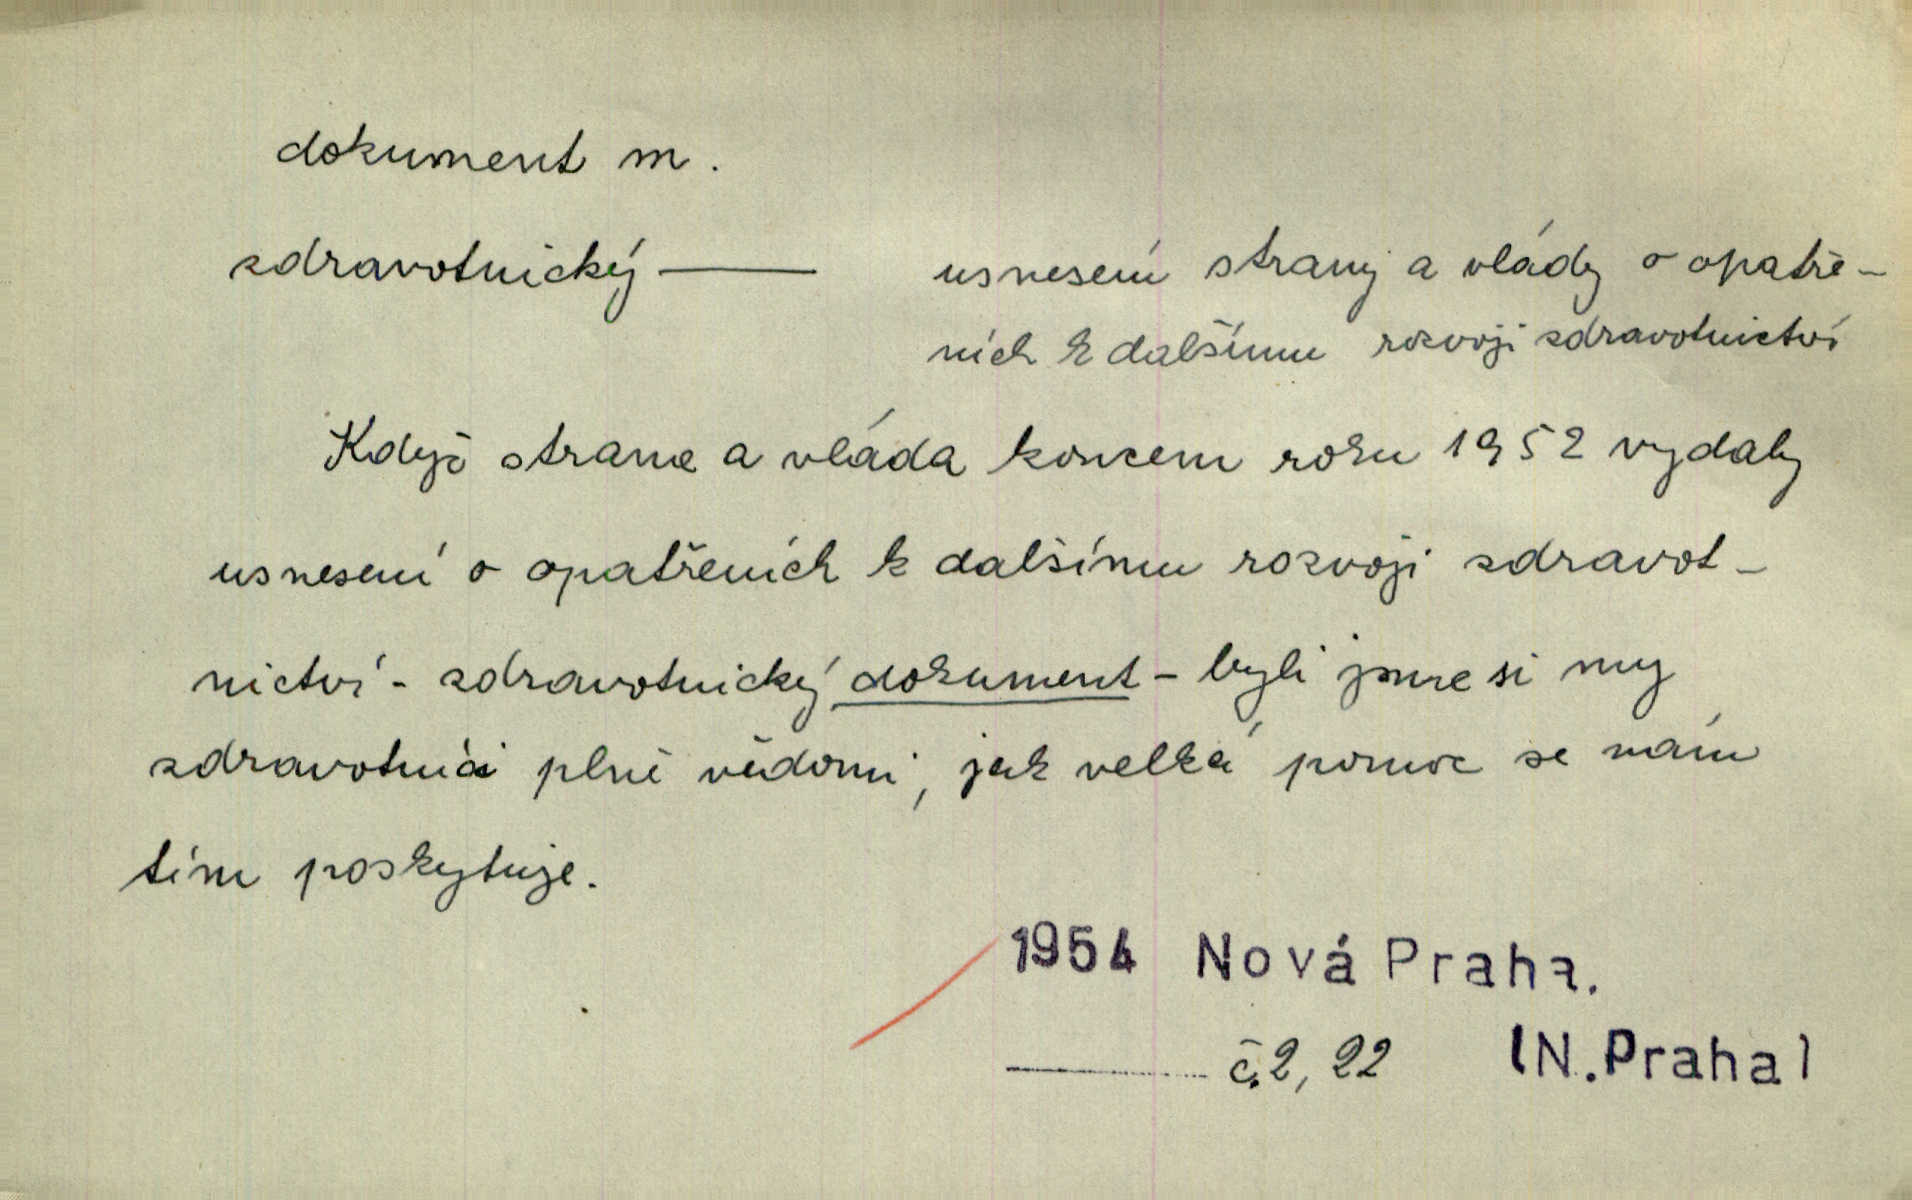 dokument m.
zdravotnický —— usnesení strany a vlády o opatře-
ních k dalšímu rozvoji zdravotnictví
Když strana a vláda koncem roku 1952 vydaly
usnesení o opatřeních k dalšímu rozvoji zdravot-
nictví - zdravotnický dokument - byli jsme si my
zdravotníci plně vědomi, jak velká pomoc se nám
tím poskytuje.
1954 Nová Praha.
—— č.2, 22 (N.Praha)